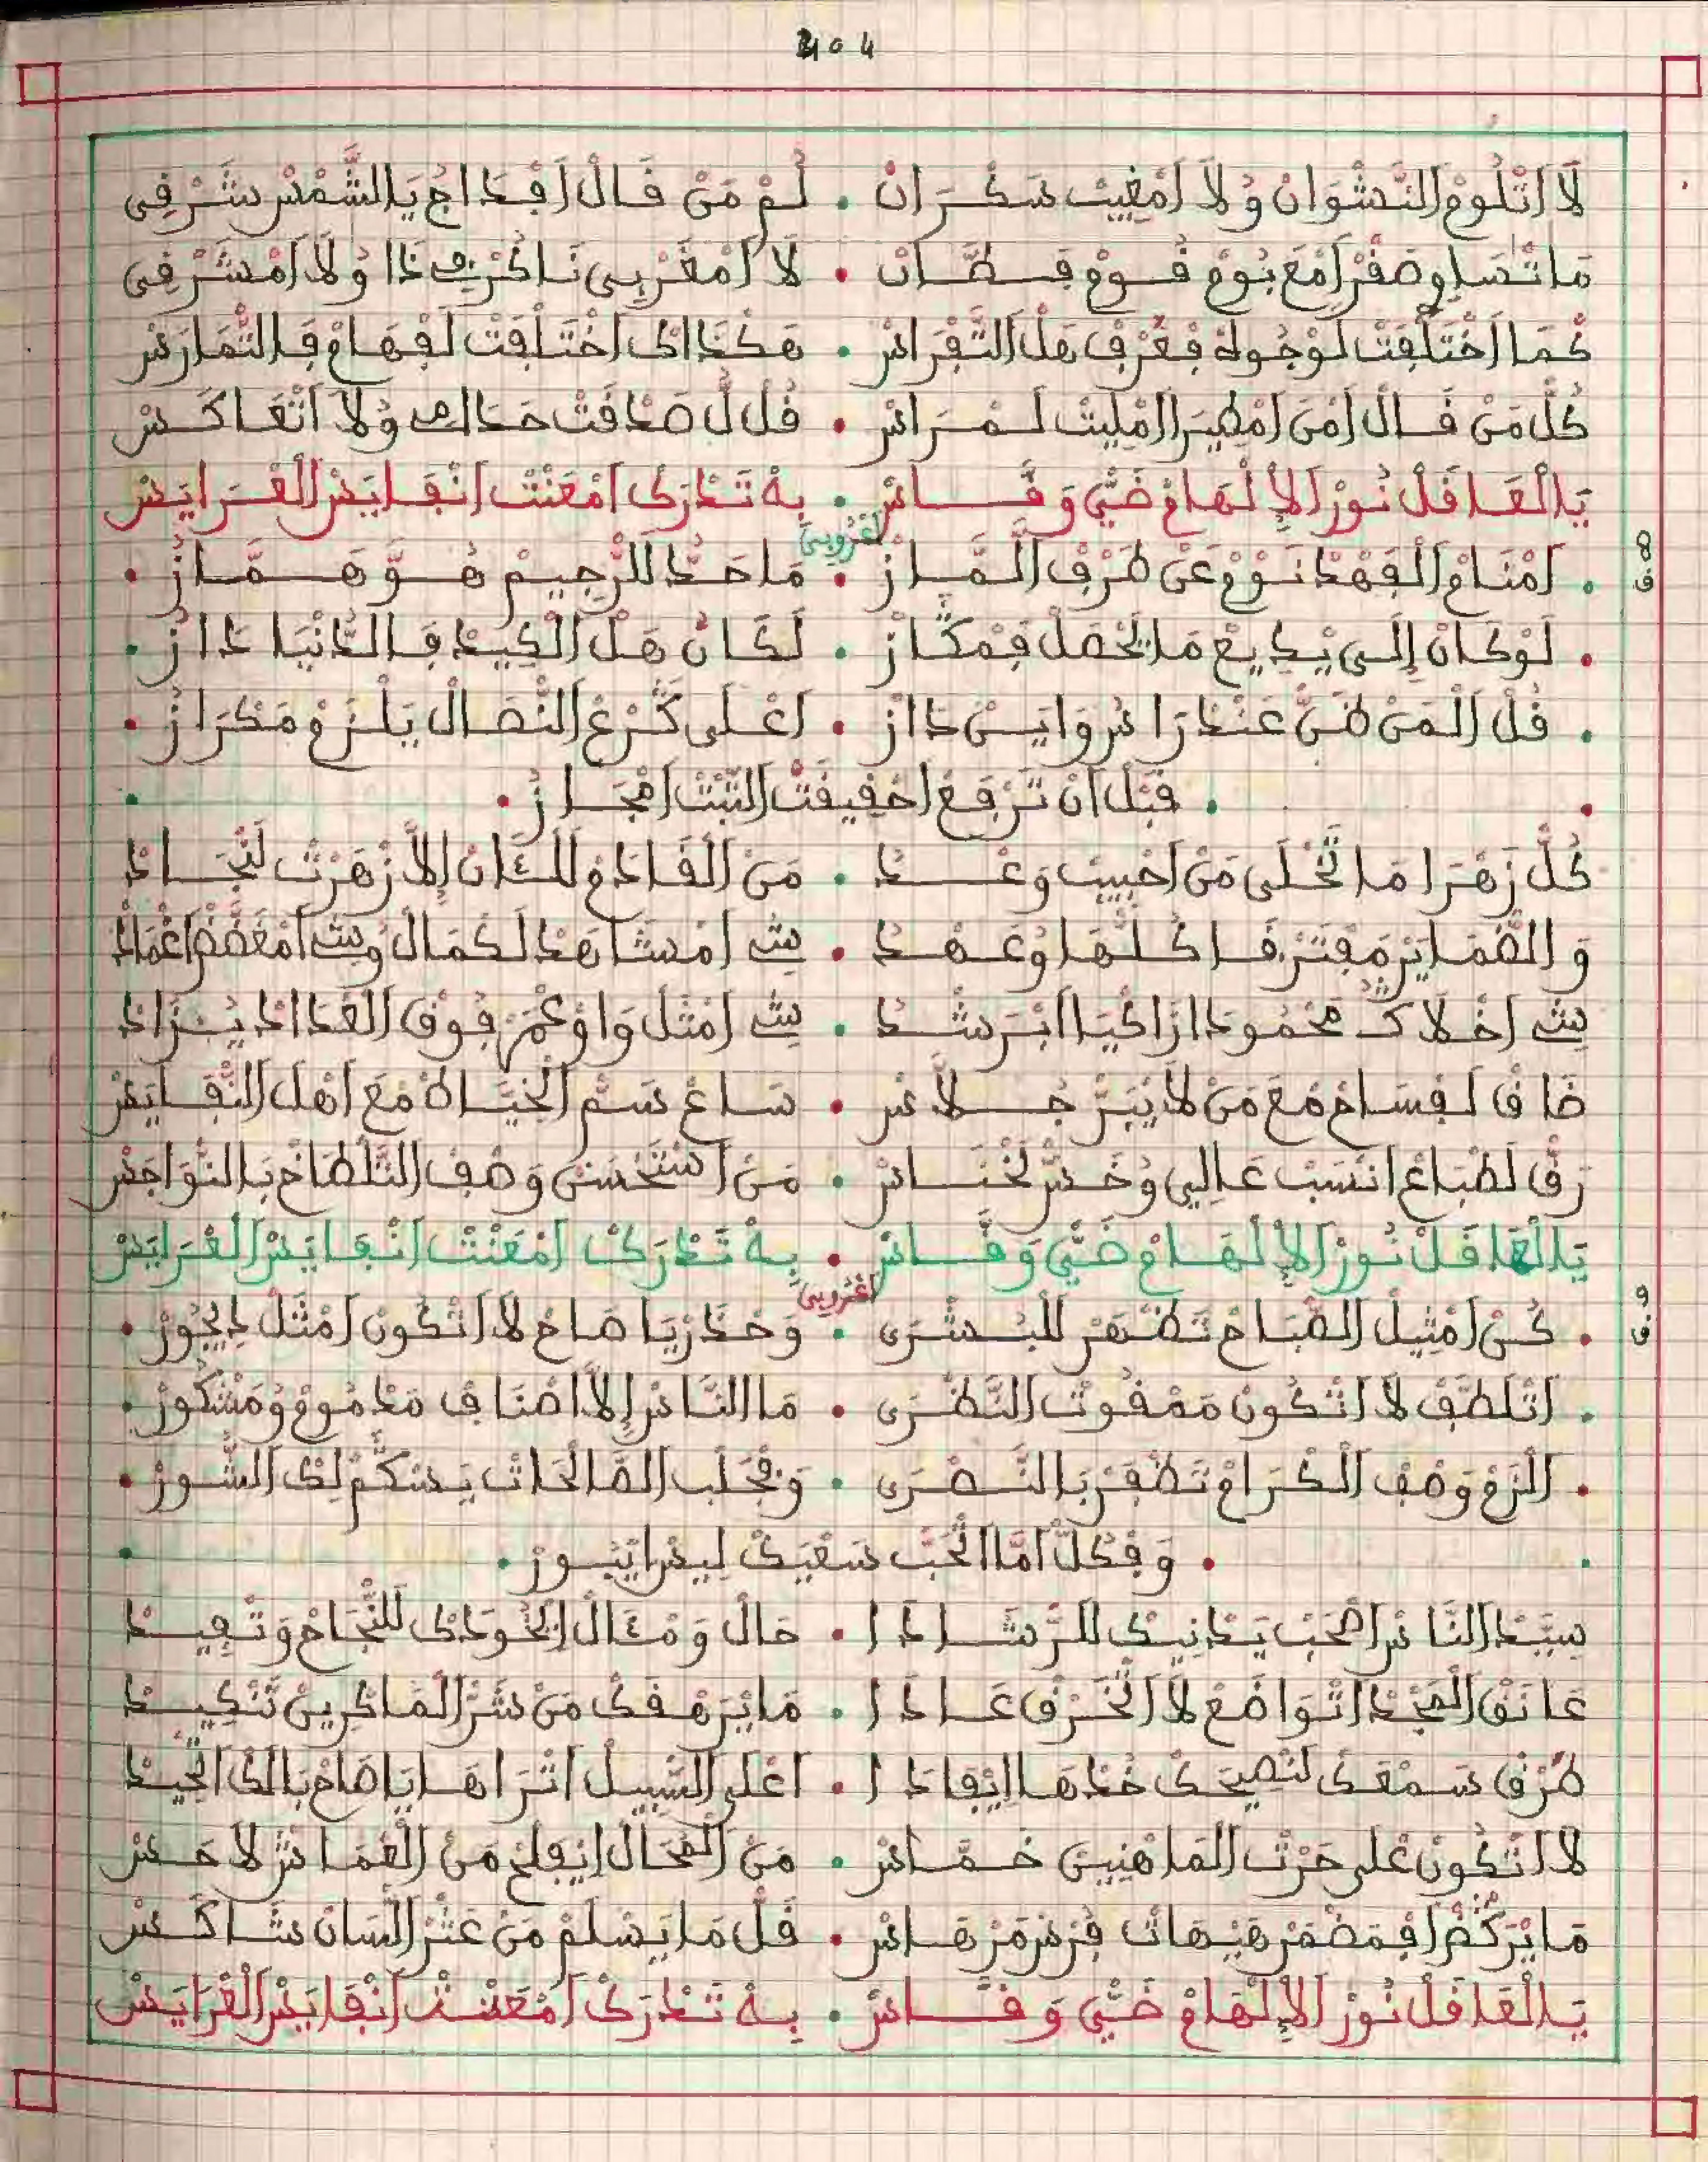 404
لَا اتْلُومْ النَّشْوَانْ وُلَا امْغِيبْ سَكْرَانْ • لُمْ مَنْ قَالْ افْدَاجْ يَا الشَّمْسْ شَرْقِي
مَا تْصَاوِصَقْرْ امْعَ بُومْ فُومْ فِطَّانْ • لَا امْغَرْبِي نَاكْرْ ذَا وُلَا امْشَرْقِي
كْمَا اخْتَلْفَتْ لَوْجُوهْ فْعُرْفْ هَلْ التَّفْرَاسْ • هَكْذَاكْ اخْتَلْفَتْ لَفْهَامْ فَالتّْمَارَسْ
كُلّْ مَنْ قَالْ امَنْ امْطِيرْ الْمْلِيتْ لَمْرَاسْ • قُلْ لُ صَدْقَتْ حَدَاكْ وُلَا اتْعَاكَسْ
يَا الْعَاقَلْ نُورْ الإِلْهَامْ ضَيّْ وَقَّاسْ • بِهْ تَدْرَكْ امْعَنْتْ انْفَايَسْ الْغْرَايَسْ
اعْرُوبِي
امْنَامْ الْفَهْدْ نَوْمْ عَنْ طَرْفْ الْمَّازْ • مَا حَدّْ للرْجِيمْ هُوَّ هَمَّازْ
8 ف
لَوْ كَانْ إِلَى يْكِيعْ مَا يَحْصَلْ فَمْكَّازْ • لَكَانْ هَلْ الْكِيدْ فَالدَّنْيَا دَازُ
قُلْ الْمَنْ ظَنّْ عَنْدْ رَاسُ وَايَسْ دَازْ • اعْلَى كَرْعْ النّْصَالْ يَلْزَمْ مَكْرَازْ
قَبْلْ أَنْ تَرْفَعْ احْقِيقَتْ الثَّبْتْ امْجَازْ
كُلّْ زَهْرَا مَا تَحْلَى مَنْ احْبِيبْ وَعْدْ • مَنْ الْقَادَمْ لَلْئَانْ إِلَّا زْهَرْتْ لَنْجَادْ
وَالضّْمَايَرْ مَفْتَرْقَا كُلّْهَا وُعَهْدْ • بِيتْ امْشَاهْدْ لَكْمَالْ وُبِيتْ امْغَضَّضْ اغْمَادْ
بِيتْ اخْلَاكْ مَحْمُودَا زَاكْيَا ابْرَشْدْ • بِيتْ امْثَلْ وَاوْ عْمَرْ فُوقْ الْعْدَادْ يُزَادْ
ضَاقْ لَفْسَاحْ مْعَ مَنْ لَا يْبَرّْ جْلَّاسْ • سَاعْ سَمّْ الْخْيَاطْ مْعَ اهْلْ النّْفَايَسْ
رَقّْ لَطْبَاعْ انْسَبْ عَالِي وُخَسّْ لَخْنَاسْ • مَنْ اسْتَحْسَنْ وَصْفْ التَّلْطَاخْ بَالنّْوَاجَسْ
يَا الْعَاقَلْ نُورْ الإِلْهَامْ ضَيّْ وَقَّاسْ • بِهْ تَدْرَكْ امْعَنْتْ انْفَايَسْ الْغْرَايَسْ
اعْرُوبِي
كُنْ امْثِيلْ الصّْبَاحْ تَظْهَرْ لَلْبُشْرَى • وَحْذَرْ يَا صَاحْ لَا اتْكُونْ امْثَلْ دِيجُورْ
9 ف
اتْلَطَّفْ لَا اتْكُونْ مَمْقُوتْ النَّظْرَى • مَا النَّاسْ إِلَّا اصْنَافْ مَدْمُومْ وُمَشْكُورْ
الْزَمْ وَصْفْ الْكْرَامْ تَظْفَرْ بَالنَّصْرَى • وَفْجَلْبْ الصَّالْحَاتْ يَسْكَمْ لِكْ الشُّورْ
وَفْكُلّْ امَّا اتْحَبّْ سَعْيَكْ لِيسْ ايْبُورْ
سِيَّدْ النَّاسْ اصْحَبْ يَدْنِيكْ للرّْشَادَا • حَالْ وَمْئَالْ الْخُودَكْ للنّْجَاحْ وَتْفِيدْ
عَانَقْ الْمَجْدْ اتْوَاضَعْ لَا اتْخَرْقْ عَادَا • مَا يَرَهْقَكْ مَنْ شَرّْ الْمَاكْرِينْ تَنْكِيدْ
طَرْقْ سَمْعَكْ لَنْصِيحَكْ خُدْهَا ايْفَادَا • اعْلَى السّْبِيلْ اتْرَاهَا يَا صَاحْ بَالَكْ اتْحِيدْ
لَا اتْكُونْ عْلَى حَرْتْ الْمَاهْنِينْ خَمَّاسْ • مَنْ الْمْحَالْ ايْفَلْحْ مَنْ الْغْمَاسْ لَاحَسْ
مَا يَرْكُضْ افْمَضْمَرْ هَيْهَاتْ فَرْسْ مَرْهَاسْ • قَلّْ مَا يَسْلَمْ مَنْ عَثْرْ اللّْسَانْ شَاكَسْ
يَا الْعَاقَلْ نُورْ الإِلْهَامْ ضَيّْ وَقَّاسْ • بِهْ تَدْرَكْ امْعَنْتْ انْفَايَسْ الْغْرَايَسْ